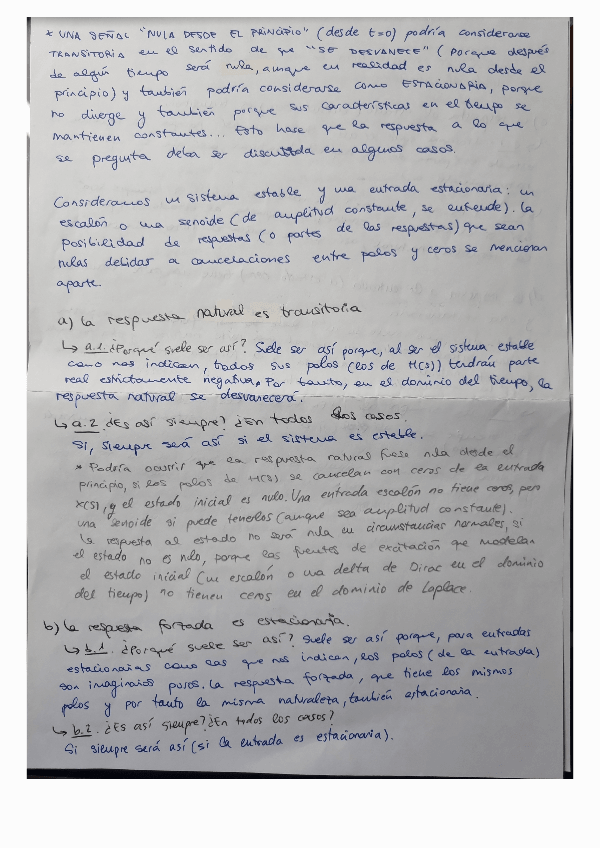 * UNA SEÑAL "NULA DESDE EL PRINCIPIO" (desde t=0) podría considerarse
TRANSITORIA en el sentido de que "SE DESVANECE" (porque después
de algún tiempo será nula, aunque en realidad es nula desde el
principio) y también podría considerarse como ESTACIONARIA, porque
no diverge y también porque sus características en el tiempo se
mantienen constantes... Esto hace que la respuesta a lo que
se pregunta deba ser discutida en algunos casos.
Consideramos un sistema estable y una entrada estacionaria: un
escalón o una senoide (de amplitud constante, se entiende). La
posibilidad de respuestas (o partes de las respuestas) que sean
nulas debidas a cancelaciones entre polos y ceros se mencionan
aparte.
a) la respuesta natural es transitoria
↳ a.1. ¿Porqué suele ser así? Suele ser así porque, al ser el sistema estable
como nos indican, todos sus polos (los de H(s)) tendrán parte
real estrictamente negativa. Por tanto, en el dominio del tiempo, la
respuesta natural se desvanecerá.
↳ a.2 ¿Es así siempre? ¿En todos los casos.
Sí, siempre será así si el sistema es estable.
* Podría ocurrir que la respuesta natural fuese nula desde el
principio, si los polos de H(s) se cancelan con ceros de la entrada
X(s), y el estado inicial es nulo. Una entrada escalón no tiene ceros, pero
una senoide si puede tenerlos (aunque sea amplitud constante).
la respuesta al estado no será nula en circunstancias normales, si
el estado no es nulo, porque las fuentes de excitación que modelan
el estado inicial (un escalón o una delta de Dirac en el dominio
del tiempo) no tienen ceros en el dominio de Laplace.
b) la respuesta forzada es estacionaria.
↳ b.1. ¿Porqué suele ser así? Suele ser así porque, para entradas
estacionarias como las que nos indican, los polos (de la entrada)
son imaginarios puros. La respuesta forzada, que tiene los mismos
polos y por tanto la misma naturaleza, también estacionaria.
↳ b.2. ¿Es así siempre? ¿En todos los casos?
Si siempre será así (si la entrada es estacionaria).